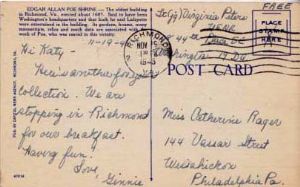 EDGAR ALLAN POE SHRINE — The oldest building
in Richmond, Va., erected about 1685. Said to have been
Washington's headquarters and that both he and Lafayette
were entertained in the building. Its gardens, house, many
mementoes, relics and much data are associated with the
Poe, who was raised in this vicinity.
Lt (jg) Virginia Peters
FREE
PLACE
STAMP
HERE
RICHMOND
NOV
1945
11-19-45
Hi Katy —
Here's another for your
Collection. We are
stopping in Richmond
for our breakfast.
Having fun.
Love
Ginnie
POST CARD
Miss Catherine Rager
144 Vassar Street
Wissahickon
Philadelphia Pa.